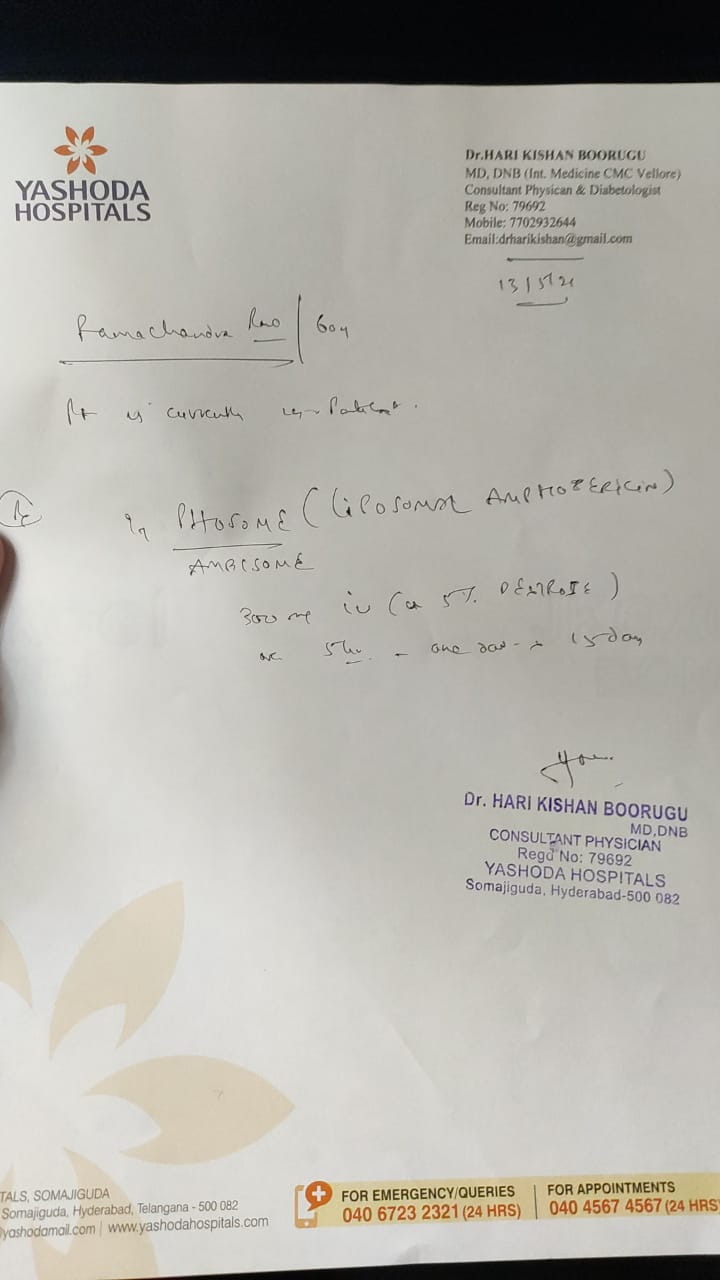 YASHODA
HOSPITALS
Dr.HARI KISHAN BOORUGU
MD, DNB (Int. Medicine CMC Vellore)
Consultant Physican & Diabetologist
Reg No: 79692
Mobile: 7702932644
Email:drharikishan@gmail.com
13/5/21
Ramachandra Rao / 60y
Pt is currently
PHOSOME (LIPOSOMAL AMPHOTERICIN)
AMBISOME
300 mg iv (in 5% DEXTROSE)
5hr. - one 15day
Dr. HARI KISHAN BOORUGU
MD,DNB
CONSULTANT PHYSICIAN
Regd No: 79692
YASHODA HOSPITALS
Somajiguda, Hyderabad-500 082
TALS, SOMAJIGUDA
Somajiguda, Hyderabad, Telangana - 500 082
yashodamail.com | www.yashodahospitals.com
FOR EMERGENCY/QUERIES
040 6723 2321 (24 HRS)
FOR APPOINTMENTS
040 4567 4567 (24 HRS